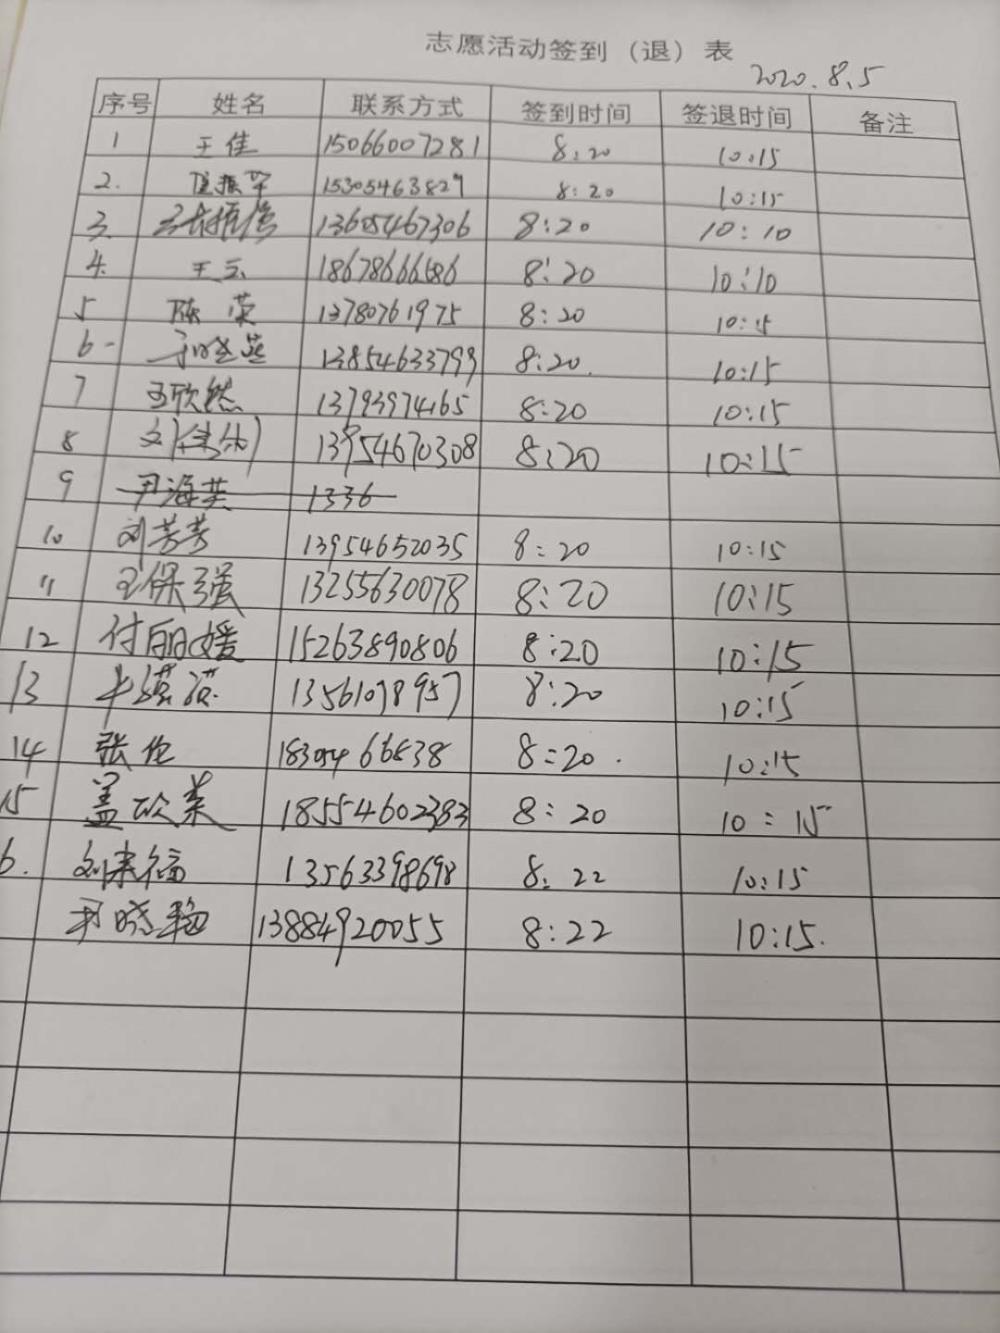 志愿活动签到（退）表
2020.8.5
序号 姓名 联系方式 签到时间 签退时间 备注
1 王佳 15066007281 8:20 10:15
2. 15305463829 8:20 10:15
3. 13605467306 8:20 10:10
4. 王云 18678666686 8:20 10:10
5 陈荣 13780761975 8:20 10:15
6- 13854633799 8:20. 10:15
7 王欣然 13793974165 8:20 10:15
8 13954670308 8:20 10:15
9 尹海英 1336
10 刘芳芳 13954652035 8:20 10:15
11 王保强 13255630078 8:20 10:15
12 付丽媛 15263890806 8:20 10:15
13 13561078957 8:20 10:15
14 张伦 8:20. 10:15
15 盖欣荣 18554602383 8:20 10:15
6. 刘来福 13563398698 8:22 10:15
尹晓艳 13884920055 8:22 10:15.